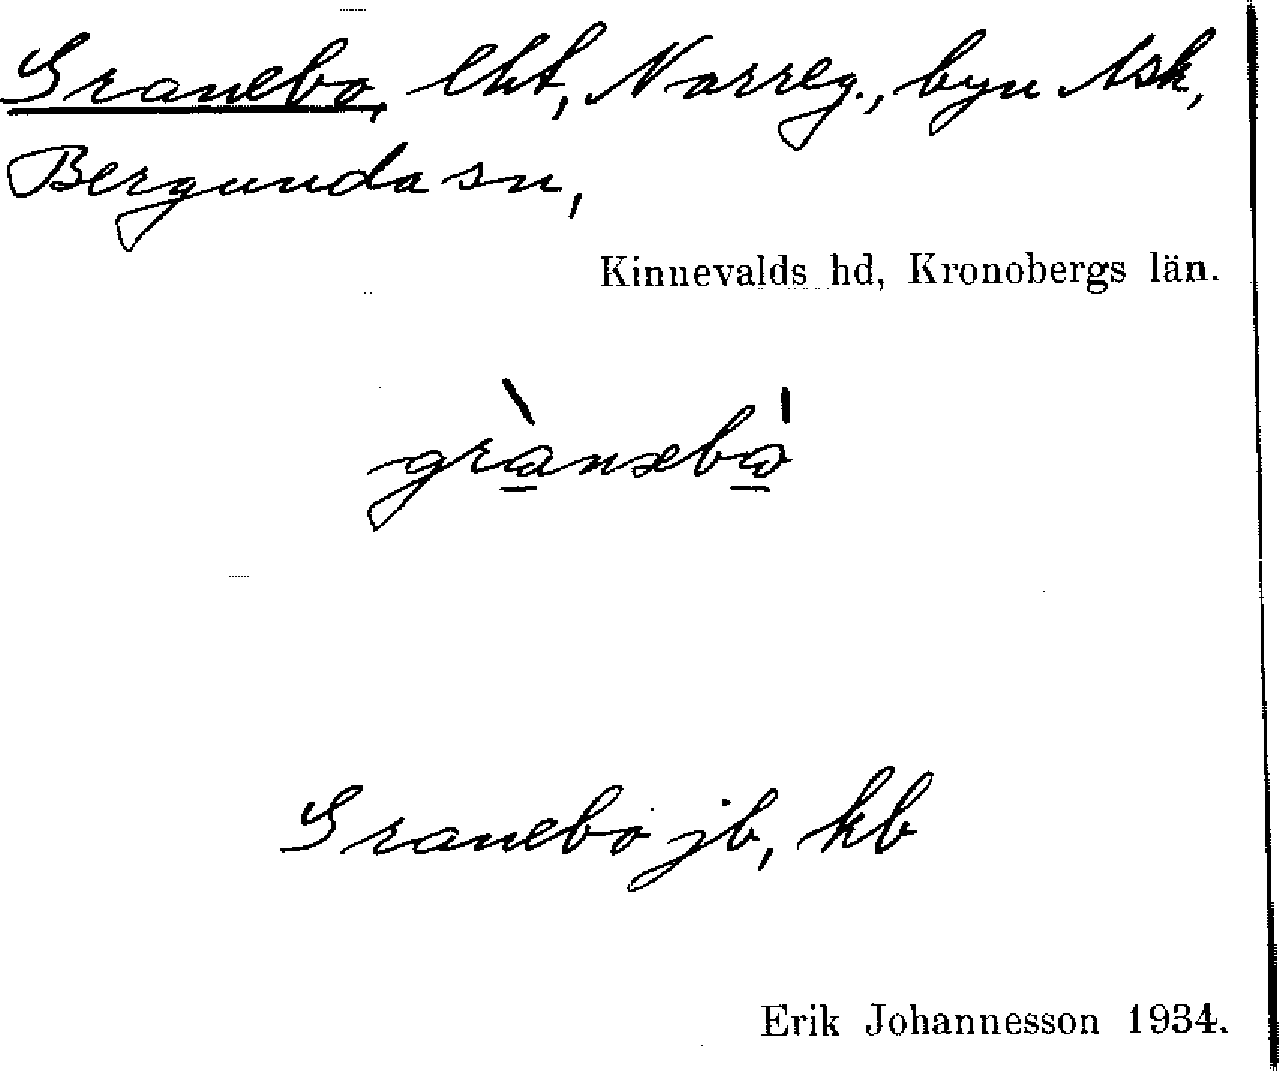 Granebo, lht, Norreg., byn Ask,
Bergunda sn,
Kinnevalds hd, Kronobergs län.
grànəbò
Granebo jb, kb
Erik Johannesson 1934.